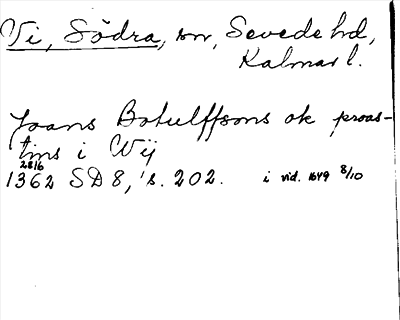 Vi, Södra, sn, Sevede hd,
Kalmar l.
Joans Botulffsons ok proas-
tins i Wij
2816
1362 SD 8, s. 202. i vid. 1649 8/10